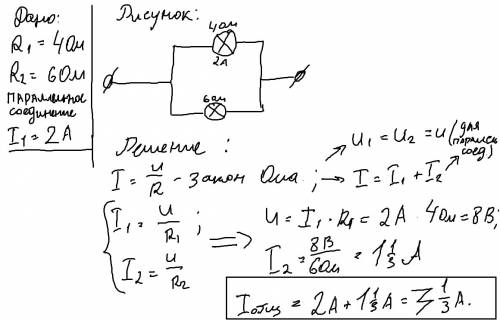 Дано:
R₁ = 4 Ом
R₂ = 6 Ом
параллельное
соединение
I₁ = 2 А
Рисунок:
4 Ом
2А
6 Ом
Решение:
I = u/R - закон Ома ; → I = I₁ + I₂
u₁ = u₂ = u (для
параллел
соед)
I₁ = u/R₁ ;
I₂ = u/R₂
⇒ u = I₁ · R₁ = 2А · 4 Ом = 8В;
I₂ = 8В/6 Ом = 1 1/3 А
Iобщ = 2А + 1 1/3 А = 3 1/3 А.